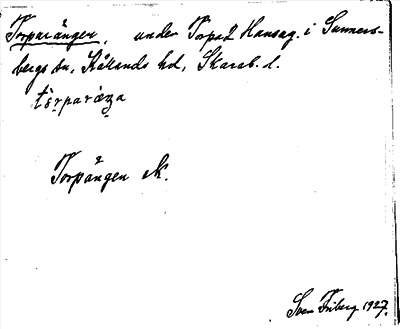 Torparängen, under Torpa 2 Hansag. i Sunners-
bergs sn, Kållands hd, Skarab. l.
Torpängen
Sven Friberg 1927.